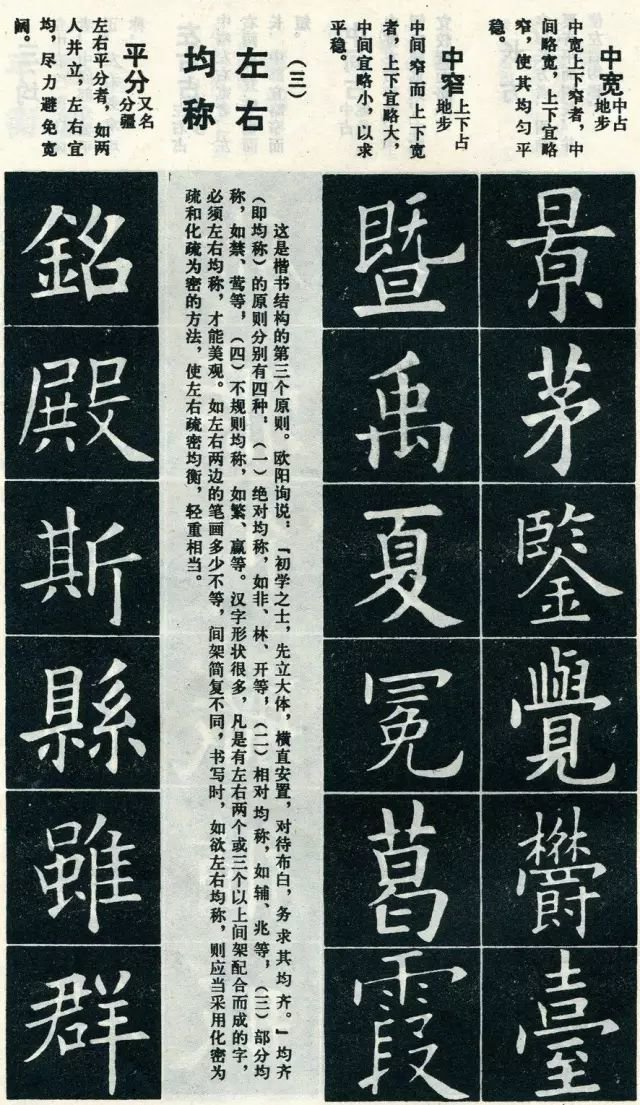 中宽
中占
地步
中宽上下窄者，中
间略宽，上下宜略
窄，使其均匀平
景
茅
鑒
覺
鬱
臺
中窄
上下占
地步
中间窄而上下宽
者，上下宜略大，
中间宜略小，以求
平稳。
暨
禹
夏
冕
葛
霞
（三）
左右
均称
这是楷书结构的第三个原则。欧阳询说：“初学之士，先立大体，横直安置，对待布白，务求其均齐。”均齐
（即均称）的原则分别有四种，（一）绝对均称，如非、林、开等，（二）相对均称，如辅、兆等，（三）部分均
称，如禁、莺等，（四）不规则均称，如繁、赢等。汉字形状很多，凡是有左右两个或三个以上间架配合而成的字，
必须左右均称，才能美观。如左右两边的笔画多少不等，间架简复不同，书写时，如欲左右均称，则应当采用化密为
疏和化疏为密的方法，使左右疏密均衡，轻重相当。
平分
又名
分疆
左右平分者，如两
人并立，左右宜
均，尽力避免宽
阔。
銘
殿
斯
縣
雖
群